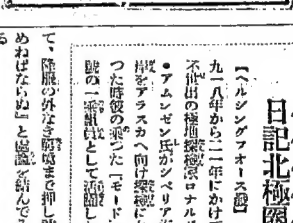 日記北極圏
【ヘルシングフオース發】
九一八年から二一年にかけ
不世出の極地探檢家ロナル
●アムンゼン氏がシベリア
岸をアラスカへ向け探檢に
つた時彼の乘つた「モード
號の一乘組員として活躍し
て、降服の外なき窮境まで押し
めねばならぬ』と結んでる
る